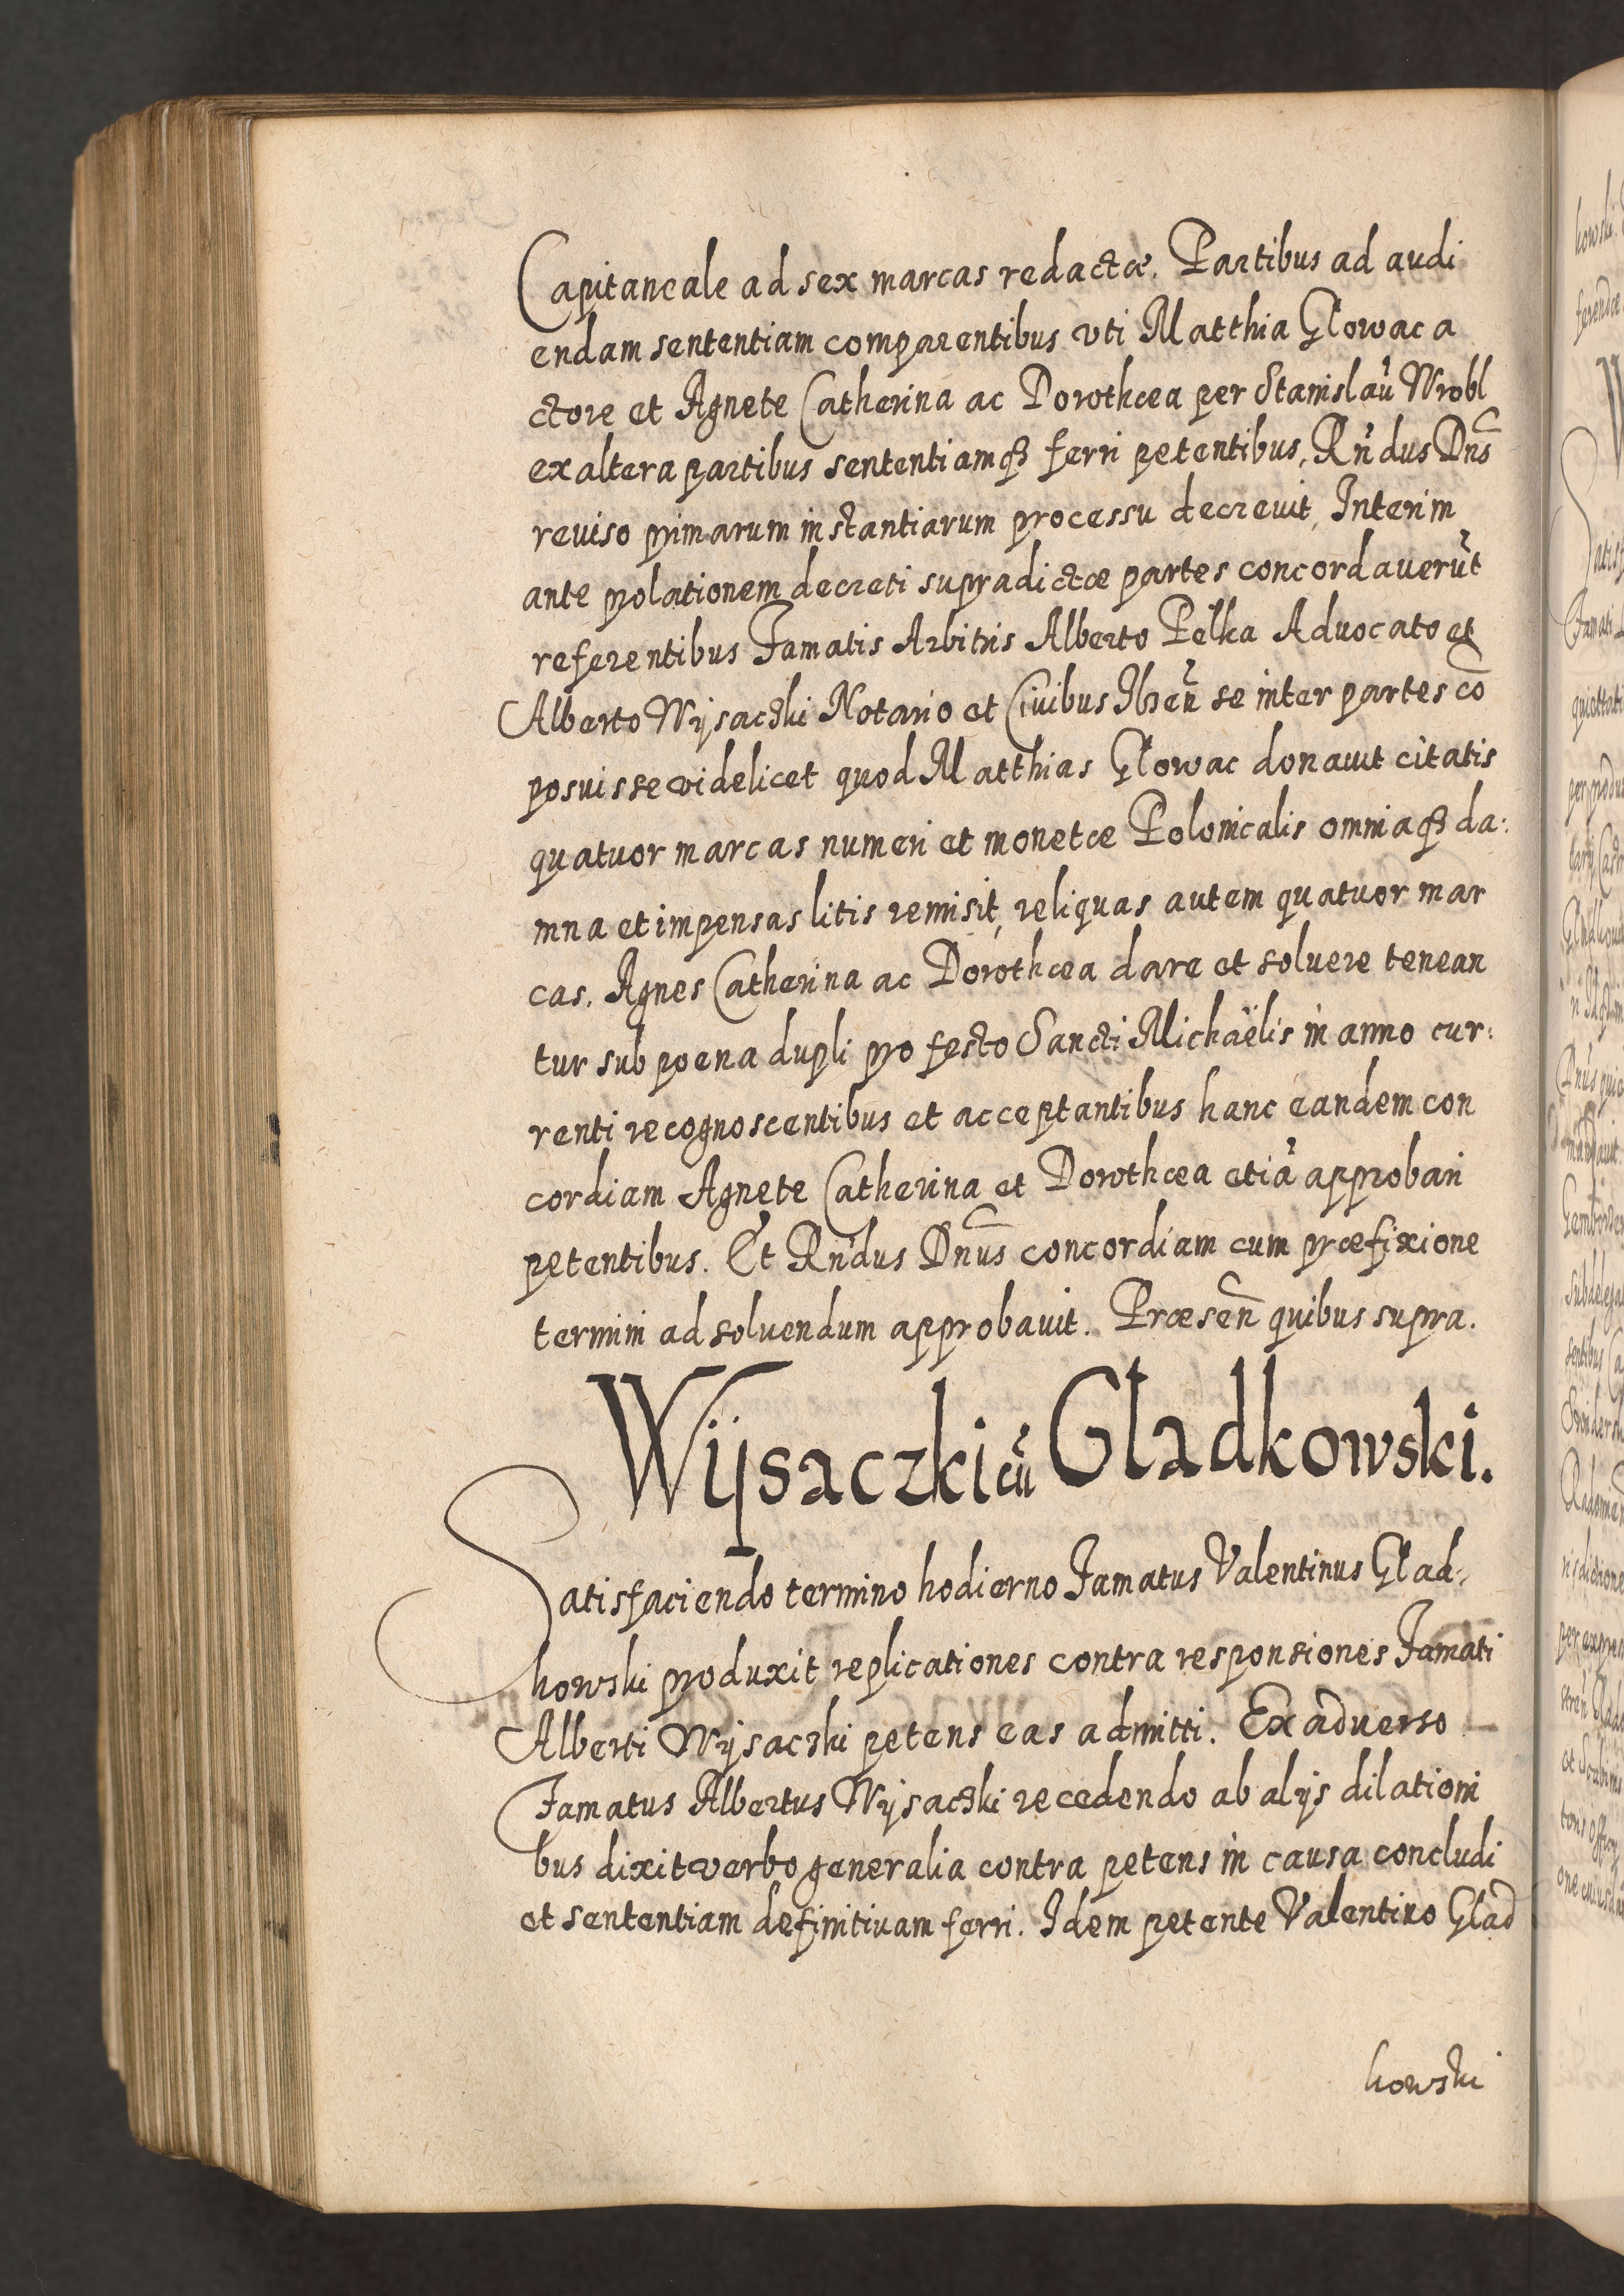 Capitaneale ad sex marcas redactæ. Partibus ad audi
endam sententiam comparentibus vti Matthia Glowac a
ctore et Agnete Catherina ac Dorothœa per Stanislaũ Wrobl
ex altera partibus sententiamqꝫ ferri petentibus, Rñdus Dñs
reuiso primarum instantiarum processu decreuit, Interim
ante prolationem decreti supradictæ partes concordauerũt
referentibus Famatis Arbitris Alberto Pełka Aduocato et
Alberto Wijsaczki Notario et Ciuibus Ilzeñ se inter partes cõ
posuisse videlicet quod Matthias Głowac donauit citatis
quatuor marcas numeri et monetæ Polonicalis omniaqꝫ da:
mna et impensas litis remisit, reliquas autem quatuor mar
cas. Agnes Catherina ac Dorothœa dare et soluere tenean
tur sub poena dupli pro festo Sancti Michaëlis in anno cur:
renti recognoscentibus et acceptantibus hanc eandem con
cordiam Agnete Catherina et Dorothœa etiã approbari
petentibus. Et Rñdus Dñus concordiam cum præfixione
termini ad soluendum approbauit. Præseñ quibus supra.
Wijsaczki cũ Gladkowski.
Satisfaciendo termino hodierno Famatus Valentinus Glad-
kowski produxit replicationes contra responsiones Famati
Alberti Wijsaczki petens eas admitti. Ex aduerso
Famatus Albertus Wijsaczki recedendo ab alijs dilationi
bus dixit verbo generalia contra petens in causa concludi
et sententiam definitiuam ferri. Idem petente Valentino Glad
kowski